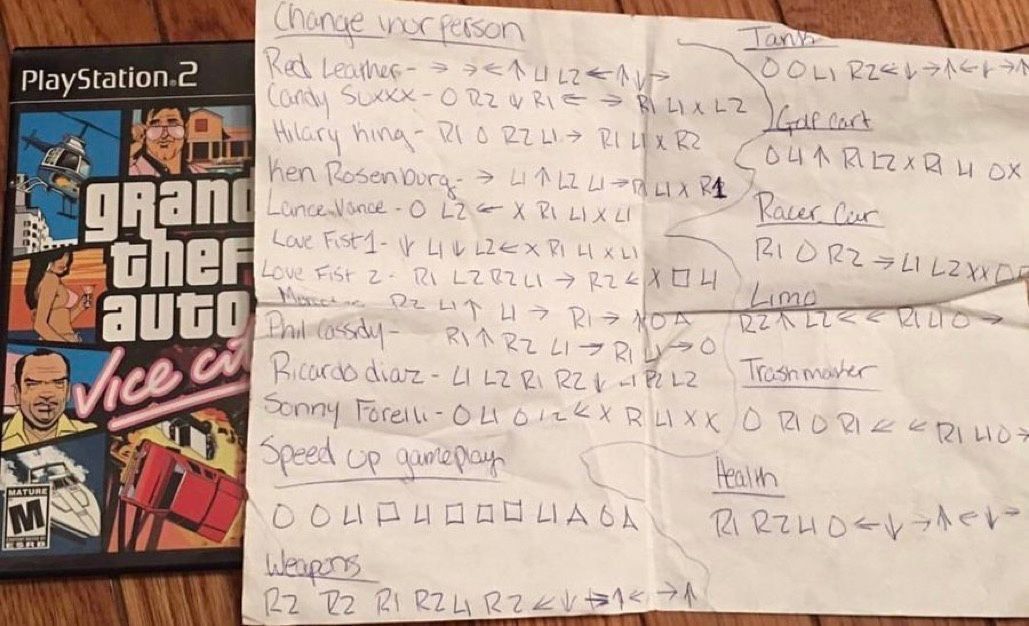 PlayStation.2
grand
thef
auto
Vice cit
MATURE
M
ESRB
Change your person
Red Leather - → → ← ↑ L1 L2 ← ↑ ↓ →
Candy Suxxx - O R2 ↓ R1 ← → R1 L1 x L2
Hilary King - R1 O R2 L1 → R1 L1 x R2
Ken Rosenburg - → L1 ↑ L2 L1 → R1 L1 x R1
Lance Vance - O L2 ← X R1 L1 X L1
Love Fist 1 - ↓ L1 ↓ L2 ← X R1 L1 X L1
Love Fist 2 - R1 L2 R2 L1 → R2 ← X □ L1
R2 L1 ↑ L1 → R1 → ↑ O △
Phil Cassidy - R1 ↑ R2 L1 → R1 L1 → O
Ricardo diaz - L1 L2 R1 R2 ↓ L1 R2 L2
Sonny Forelli - O L1 O L2 ← X R1 L1 X X
Speed up gameplay
O O L1 □ L1 □ □ □ L1 △ O △
Weapons
R2 R2 R1 R2 L1 R2 ← ↓ → ↑ ← → ↑
Tank
O O L1 R2 ← ↓ → ↑ ← ↓ → ↑
Golf cart
O L1 ↑ R1 L2 X R1 L1 O X
Racer Car
R1 O R2 → L1 L2 X X □
Limo
R2 ↑ L2 ← ← R1 L1 O →
Trashmaster
O R1 O R1 ← ← R1 L1 O →
Health
R1 R2 L1 O ← ↓ → ↑ ← ↓ →